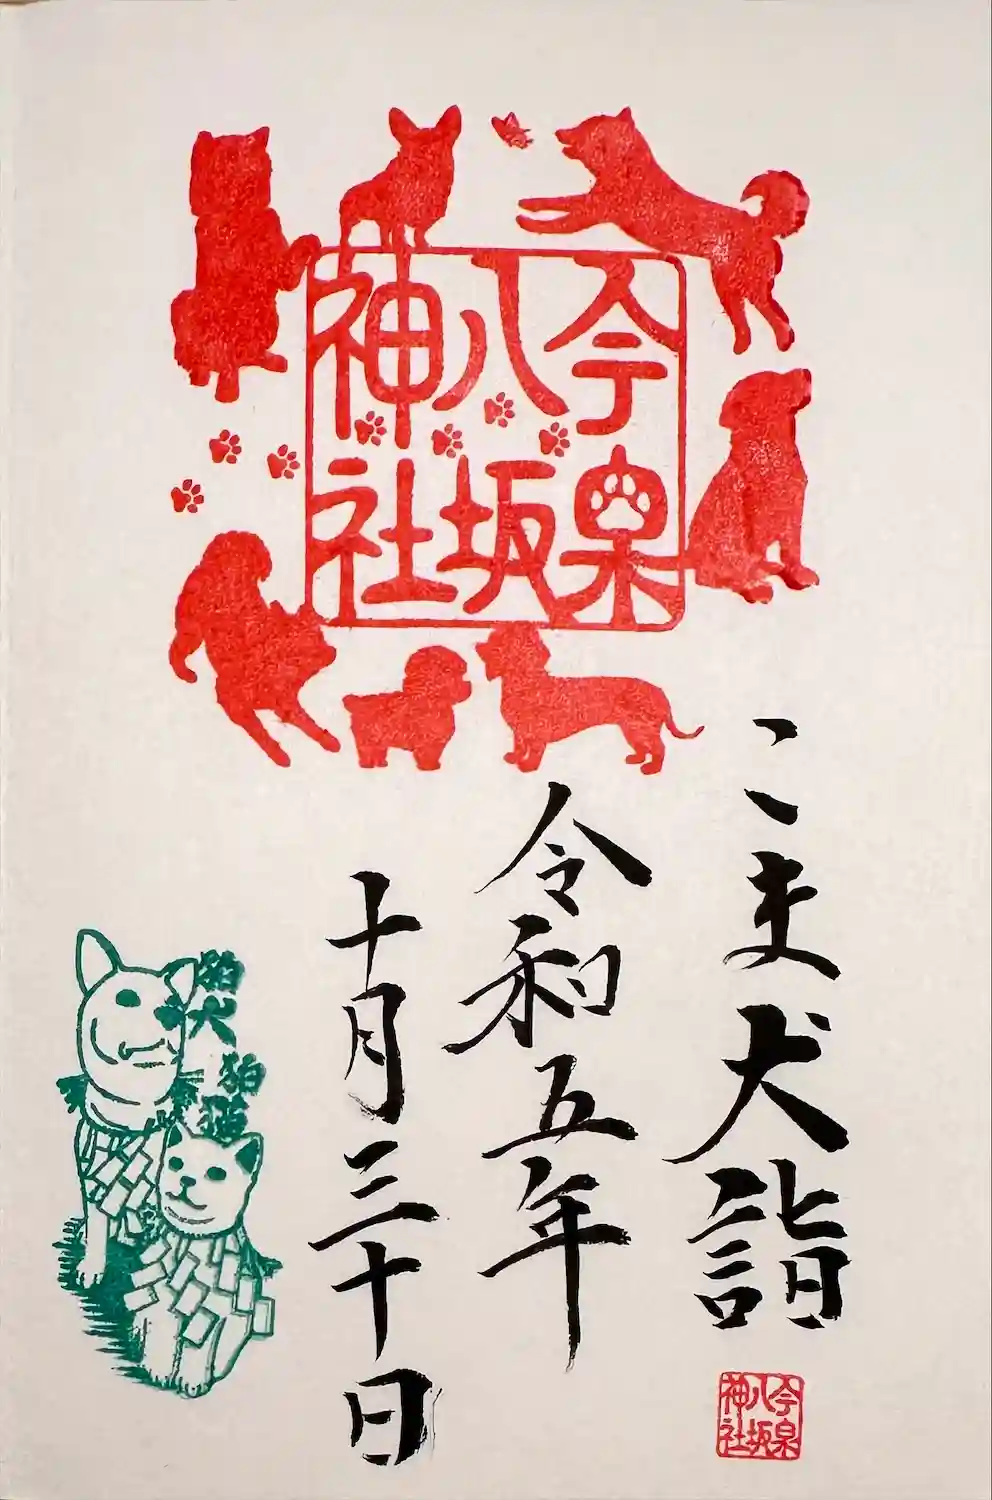 今泉
八坂
神社
こま犬詣
令和五年
十月三十日
狛犬
狛猫
今泉
八坂
神社